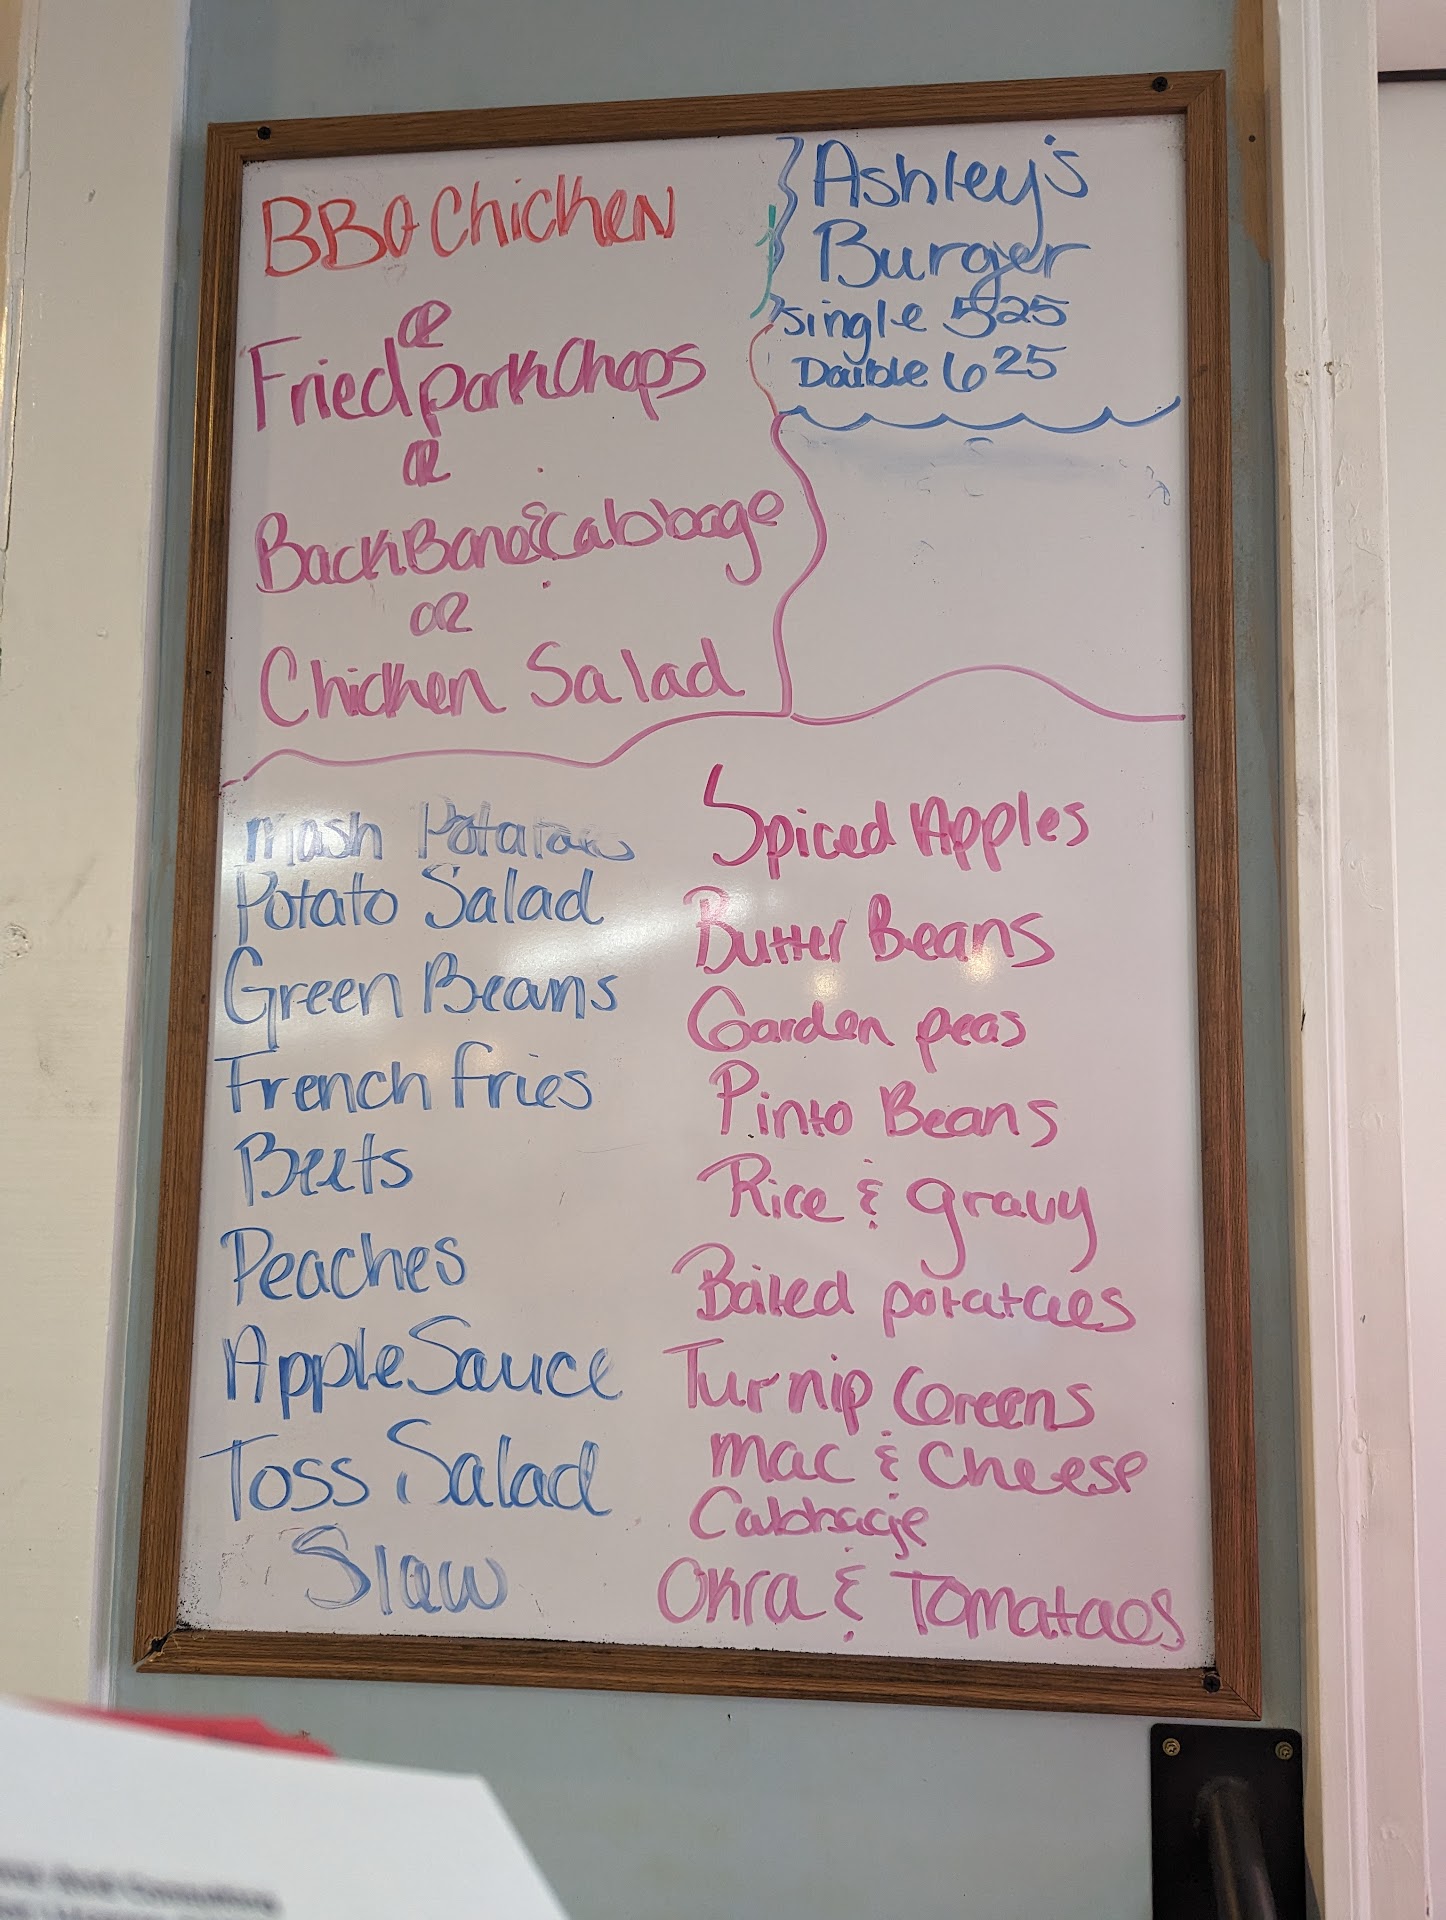 BBQ Chicken
OR
Fried pork Chops
OR
BackBone & Cabbage
OR
Chicken Salad
Ashley's
Burger
single 5 25
Double 6 25
Mash Potatoes
Potato Salad
Green Beans
French fries
Beets
Peaches
Apple Sauce
Toss Salad
Slaw
Spiced Apples
Butter Beans
Garden peas
Pinto Beans
Rice & gravy
Baked potatoes
Turnip Greens
Mac & Cheese
Cabbage
Okra & Tomatoes